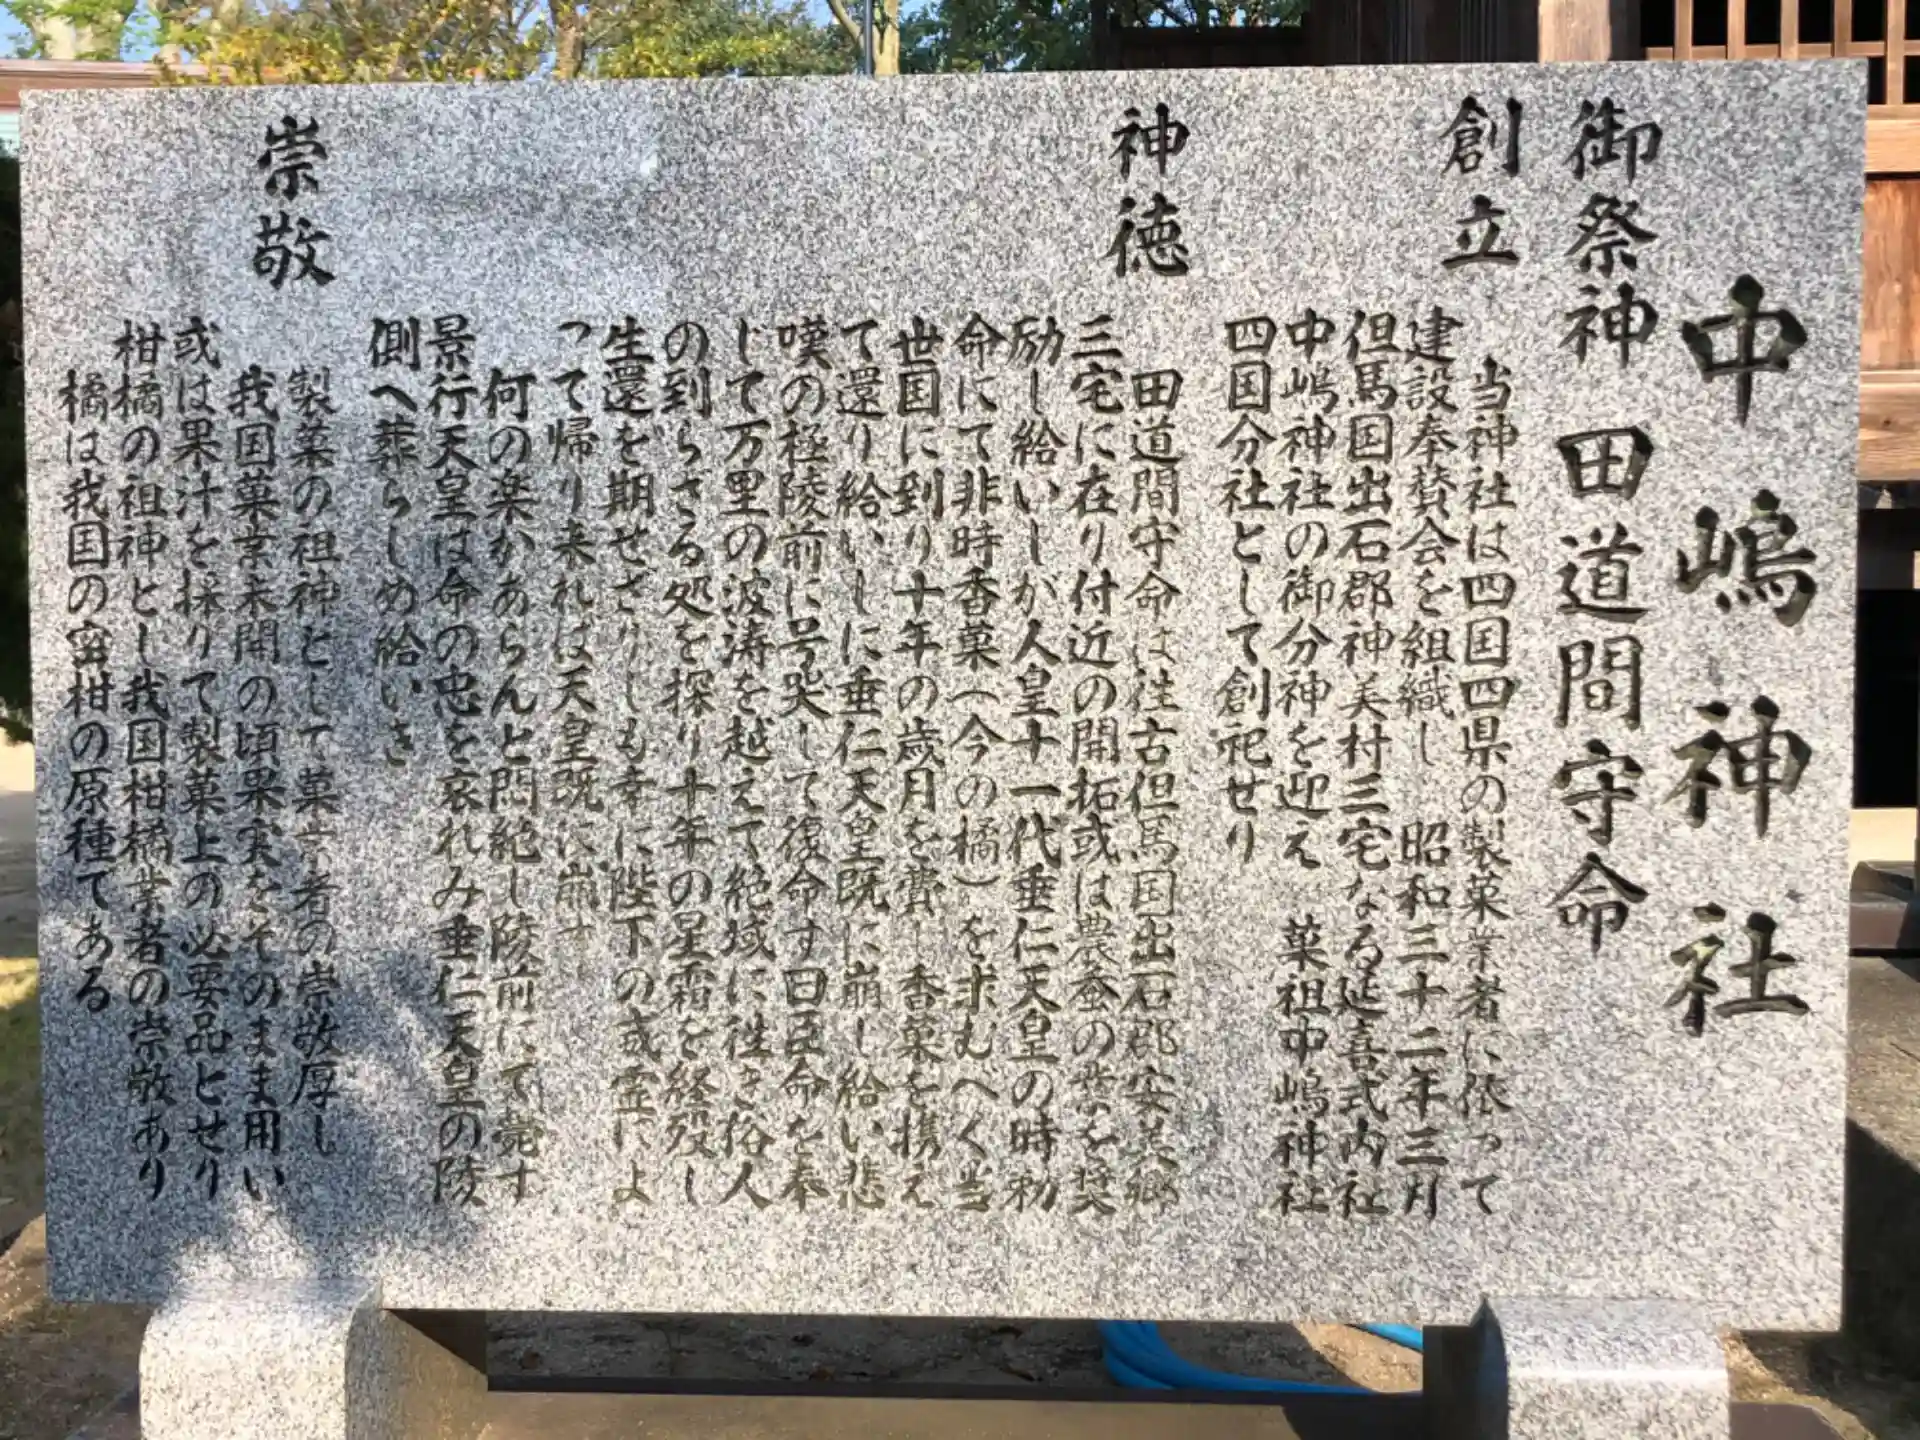 中嶋神社
御祭神 田道間守命
創立
当神社は四国四県の製菓業者に依って
建設奉賛会を組織し 昭和三十二年三月
但馬国出石郡神美村三宅なる延喜式内社
中嶋神社の御分神を迎え 菓祖中嶋神社
四国分社として創祀せり
神徳
田道間守命は往古但馬国出石郡安美郷
三宅に在り付近の開拓或は農蚕の業を奨
励し給いしが人皇十一代垂仁天皇の時勅
命にて非時香菓(今の橘)を求むべく当
世国に到り十年の歳月を費し香菓を携え
て還り給いしに垂仁天皇既に崩じ給い悲
嘆の極陵前に号哭して復命す曰臣命を奉
じて万里の波涛を越えて絶域に往き俗人
の到らざる処を探り十年の星霜を経歿し
生還を期せざりしも幸に陛下の威霊によ
って帰り来れば天皇既に崩ず
何の楽かあらんと悶絶し陵前にて薨す
景行天皇は命の忠を哀れみ垂仁天皇の陵
側へ葬らしめ給いき
崇敬
製菓の祖神として菓業者の崇敬厚し
我国菓業未開の頃果実をそのまま用い
或は果汁を採りて製菓上の必要品とせり
柑橘の祖神とし我国柑橘業者の崇敬あり
橘は我国の蜜柑の原種てある